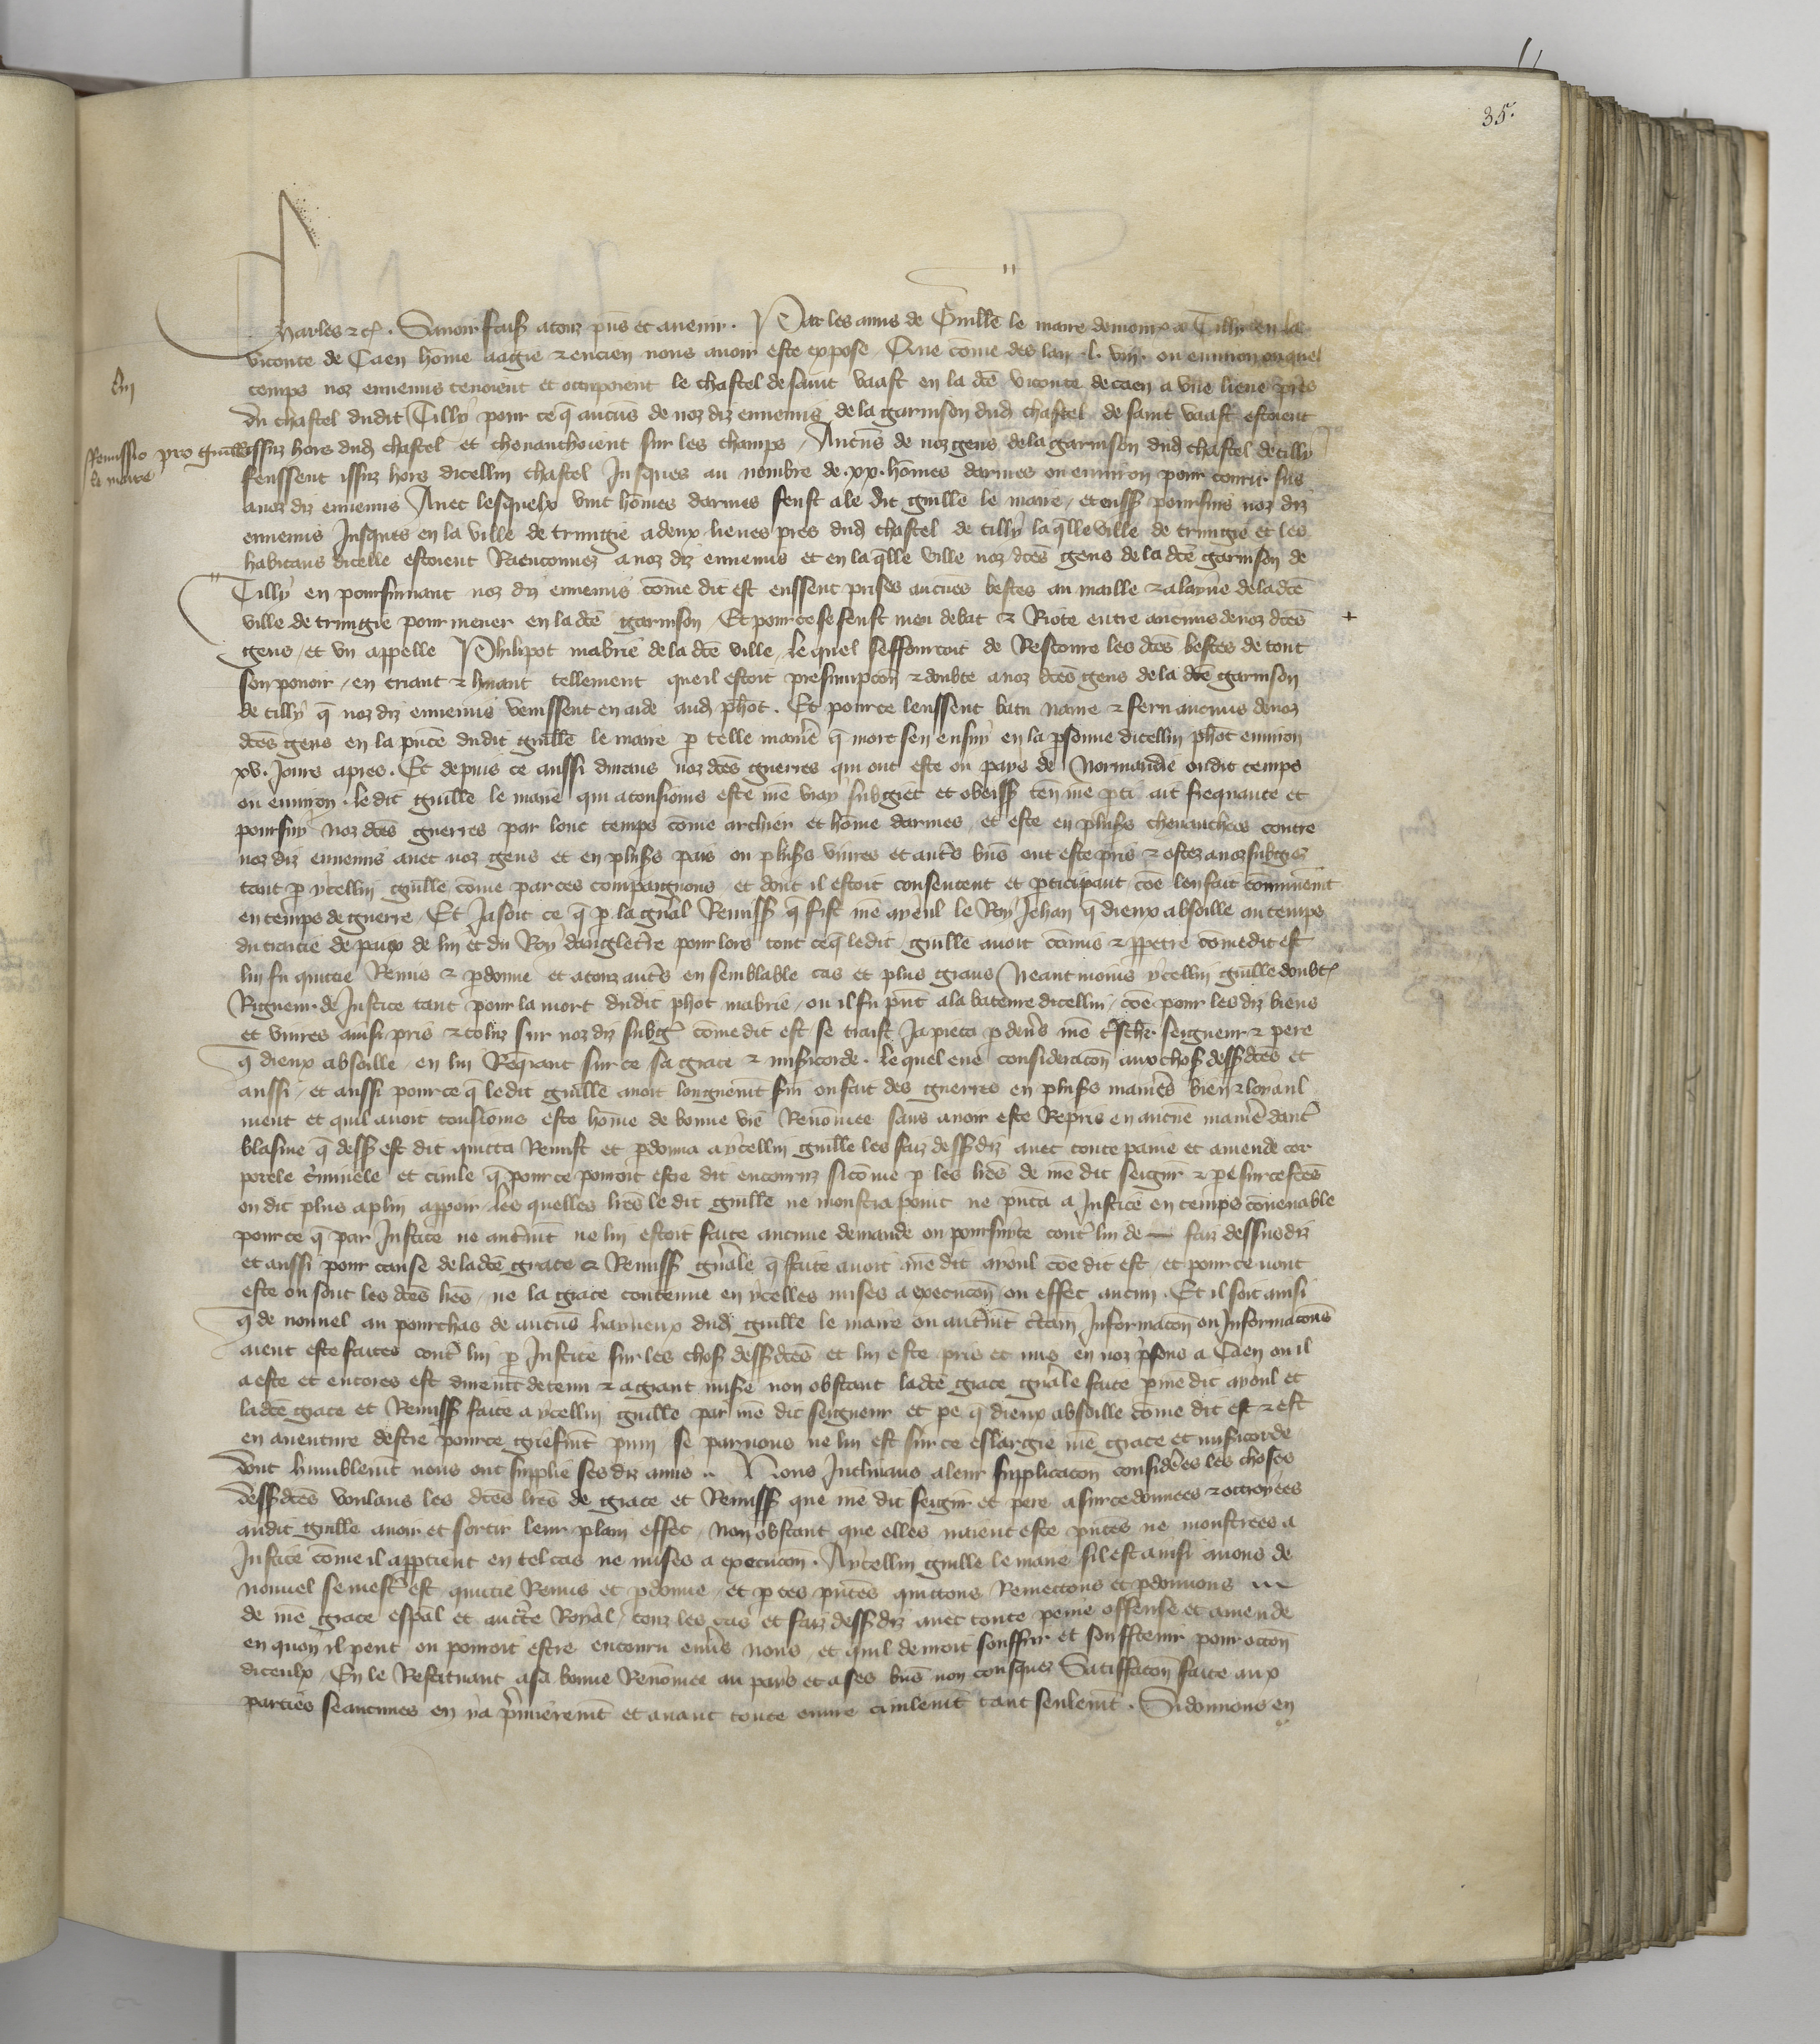 35.
Charles etc. Savoir faisons a touz pns et avenir. Par les amis de Guille le maire demourant a Tilly en la
viconte de Caen home aagie et encien nous avoir este expose Que come des lan l. viij. ou environ ouquel
temps noz ennemis tenoient et occupoient le chastel de saint vaast en la dce viconte de caen a une lieue pres
du chastel dudit Tilly pour ce q aucuns de noz diz ennemis de la garnison dud chastel de saint vaast estoient
Remissio pro Guille
le maire
issuz hors dud chastel et chevauchoient sur les champs Aucuns de noz gens de la garnison dud chastel de tilly
feussent issuz hors dicellui chastel Jusques au nombre de xx. homes darmes ou environ pour courir sus
a noz diz ennemis Avec lesquelx vint homes darmes feust ale dit guille le maire et eussent poursuis noz diz
ennemis Jusques en la ville de trungie a deux lieues pres dud chastel de tilly la qlle ville de trungie et les
habitans dicelle estoient Raenconnez a noz diz ennemis et en la qlle ville noz dces gens de la dce garnison de
Tilly en poursuivant noz diz ennemis come dit est eussent prises aucunes bestes au maille et a layne de la dce
ville de trungie pour mener en la dce garnison Et pour ce se feust meu debat et Riote entre aucuns de noz dces
gens et un appelle Philipot mabrie de la dce ville le quel sefforcoit de Rescourre les dces bestes de tout
son povoir en criant et huiant tellement que il estoit presumpcon et doubte a noz dces gens de la dce garnison
de tilly q noz diz ennemis venissent en aide aud phot. Et pour ce leussent batu navre et feru aucuns de noz
dces gens en la pnce dudit guille le maire p telle manie q mort sen ensuy en la psonne dicellui phot environ
xv. Jours apres. Et depuis ce aussi durans noz dces guerres qui ont este ou pays de Normandie oudit temps
ou environ. le dit guille le maire qui a tousiours este nre vray subgiet et obeiss ten nre pti ait frequante et
poursuy noz dces guerres par lonc temps come archier et home darmes et este en plusrs chevauchees contre
noz diz ennemis avec noz gens et en plusrs pais ou plusrs vivres et autrs bns ont este pris et ostez a noz subgiez
tant p ycellui guille come par ces compaignons et dont il estoit consentent et pticipant coe len fait comunement
en temps de guerre Et Ja soit ce q p la gnral Remiss q fist nre ayeul le Roy Jehan q dieux absoille au temps
du traictie de paix de lui et du Roy dangleterre pour lors tout ce q le dit guille avoit comis et ppetre come dit est
lui fu quictie Remis et pdonne et a touz autrs en semblable cas et plus grans Neantmoins ycellui guille doubt
Rigueur de Justice tant pour la mort dudit phot mabrie ou il fu pnt a la bateure dicellui coe pour les diz biens
et vivres ainsi pris et toluz sur noz diz subg come dit est se traist Ja pieca p devs nre treschr seigneur et pere
q dieux absoille en lui Reqrant sur ce sa grace et misicorde. le quel eue consideracon aux chos dessdces et
aussi et aussi pour ce q le dit guille avoit longuemt suy ou fait des guerres en plusrs manies bien et loyaul
ment et quil avoit tousiours este home de bonne vie Renomee sans avoir este Repris en aucune manie daut
blasme q dess est dit quicta Remist et pdonna a ycellui guille les faiz dessdiz avec toute paine et amende cor
porele criminele et civile q pour ce povoit estre dit encouruz si come p les lres de nre dit seignr et pe sur ce fces
on dit plus a plin appoir les quelles lres le dit guille ne monstra point ne pnta a Justice en temps convenable
pour ce q par Justice ne autremt ne lui estoit faite aucune demande ou poursuyte contr lui de faiz dessusdiz
et aussi pour cause de la dce grace et Remiss gnrale q faite avoit nre dit ayeul coe dit est et pour ce nont
este ou sont les dces lres ne la grace contenue en ycelles mises a execucon ou effect aucun. Et il soit ainsi
q de nouvel au pourchas de aucuns hayneux dud guille le maire ou autremt crtain Informacon ou Informacons
aient este faites contr lui p Justice sur les chos dessdces et lui este pris et mis en noz prisons a Caen ou il
a este et encores est durement detenu et a grant misie non obstant la dce grace gnrale faite p nre dit ayeul et
la dce grace et Remiss faite a ycellui guille par nre dit seigneur et pe q dieux absoille come dit est et est
en aventure destre pour ce griefmt puni se par nous ne lui est sur ce eslargie nre grace et misicorde
dont humblemt nous ont supplie ses diz amis. Nous Inclinans a leur supplicacon considrees les choses
dessdces voulans les dces lres de grace et Remiss que nre dit seignr et pere a sur ce donnees et octroyees
audit guille avoir et sortir leur plain effect Non obstant que elles naient este pntes ne monstrees a
Justice come il apptient en tel cas ne mises a execucon. A ycellui guille le maire sil est ainsi avons de
nouvel se mest est quictie Remis et pdonne et p ces pntes quictons Remectons et pdonnons
de nre grace espal et aucte Royal touz les cas et faiz dessdiz avec toute peine offense et amende
en quoy il peut ou pourroit estre encouru envrs nous et quil devroit souffrir et soustenir pour occon
diceulx En le Restituant a sa bonne Renomee au pays et a ses bns non confisquez Satisfacon faite aux
parties se aucunes en ya prmieremt et avant toute euvre civilemt tant seulemt. Si donnons en